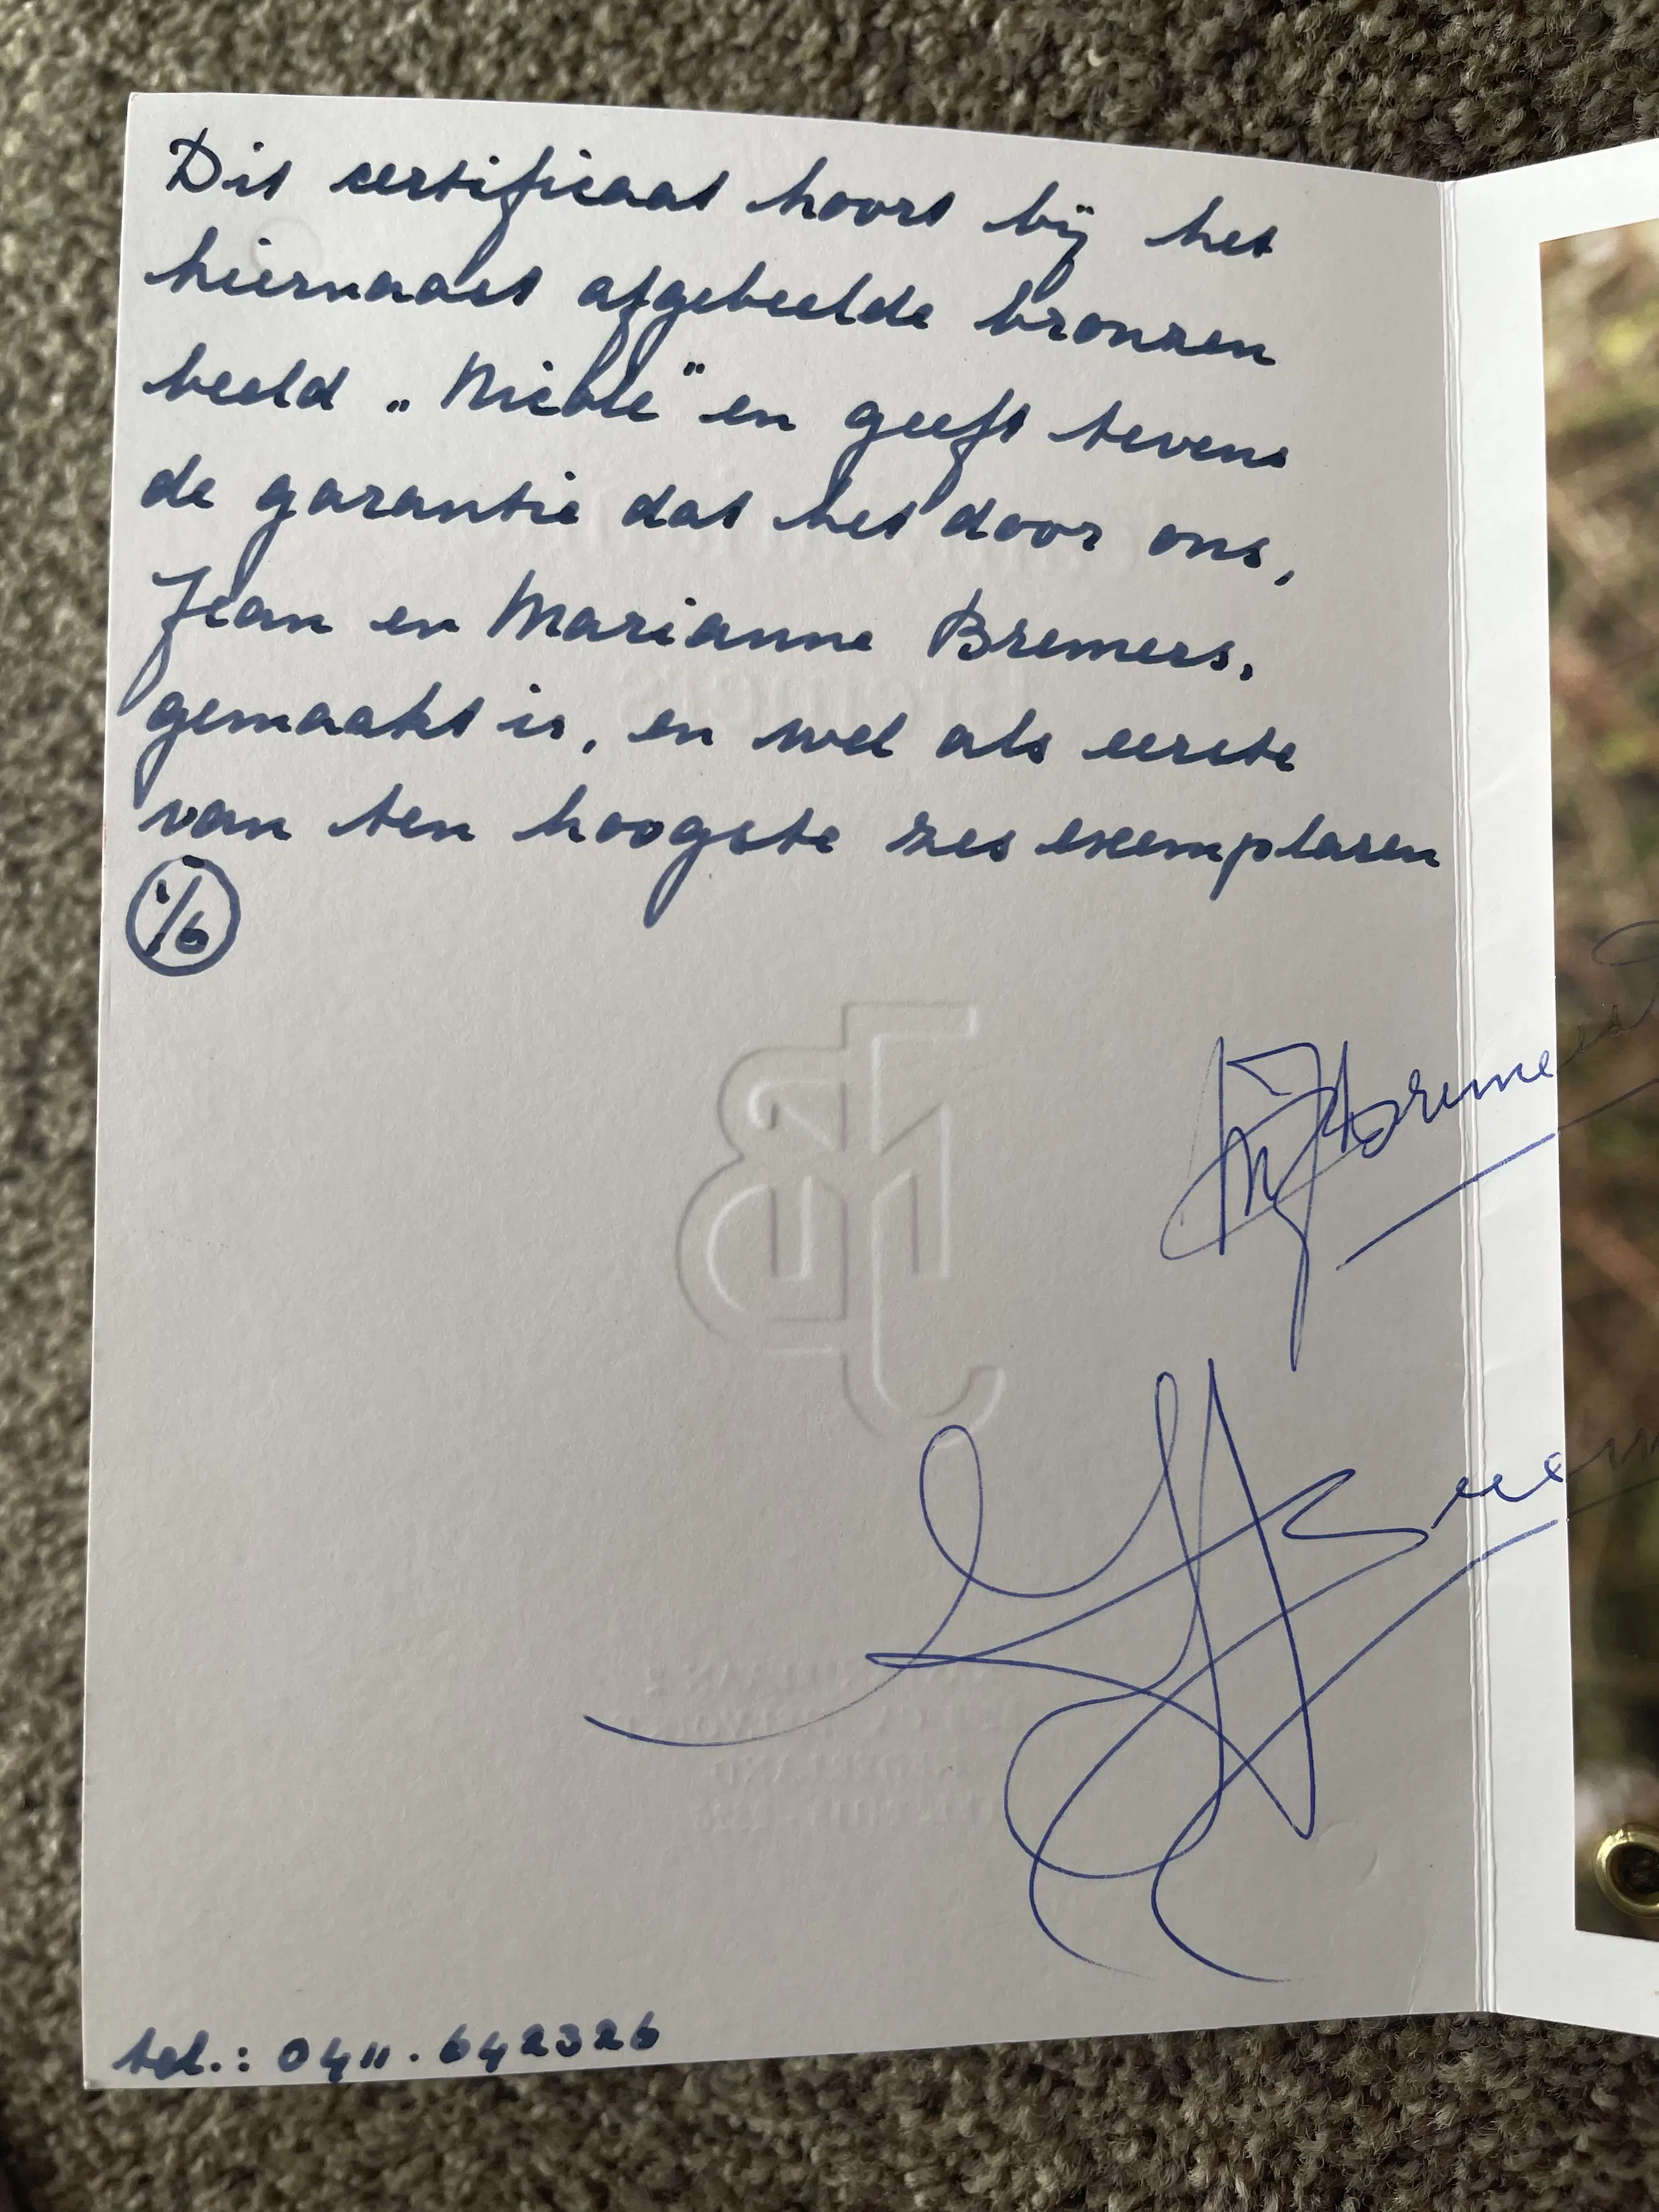 Dit certificaat hoort bij het
hiernaast afgebeelde bronzen
beeld „Nicole” en geeft tevens
de garantie dat het door ons,
Jean en Marianne Bremers,
gemaakt is, en wel als eerste
van ten hoogste zes exemplaren
1/6
Bremers
tel.: 0411.642326